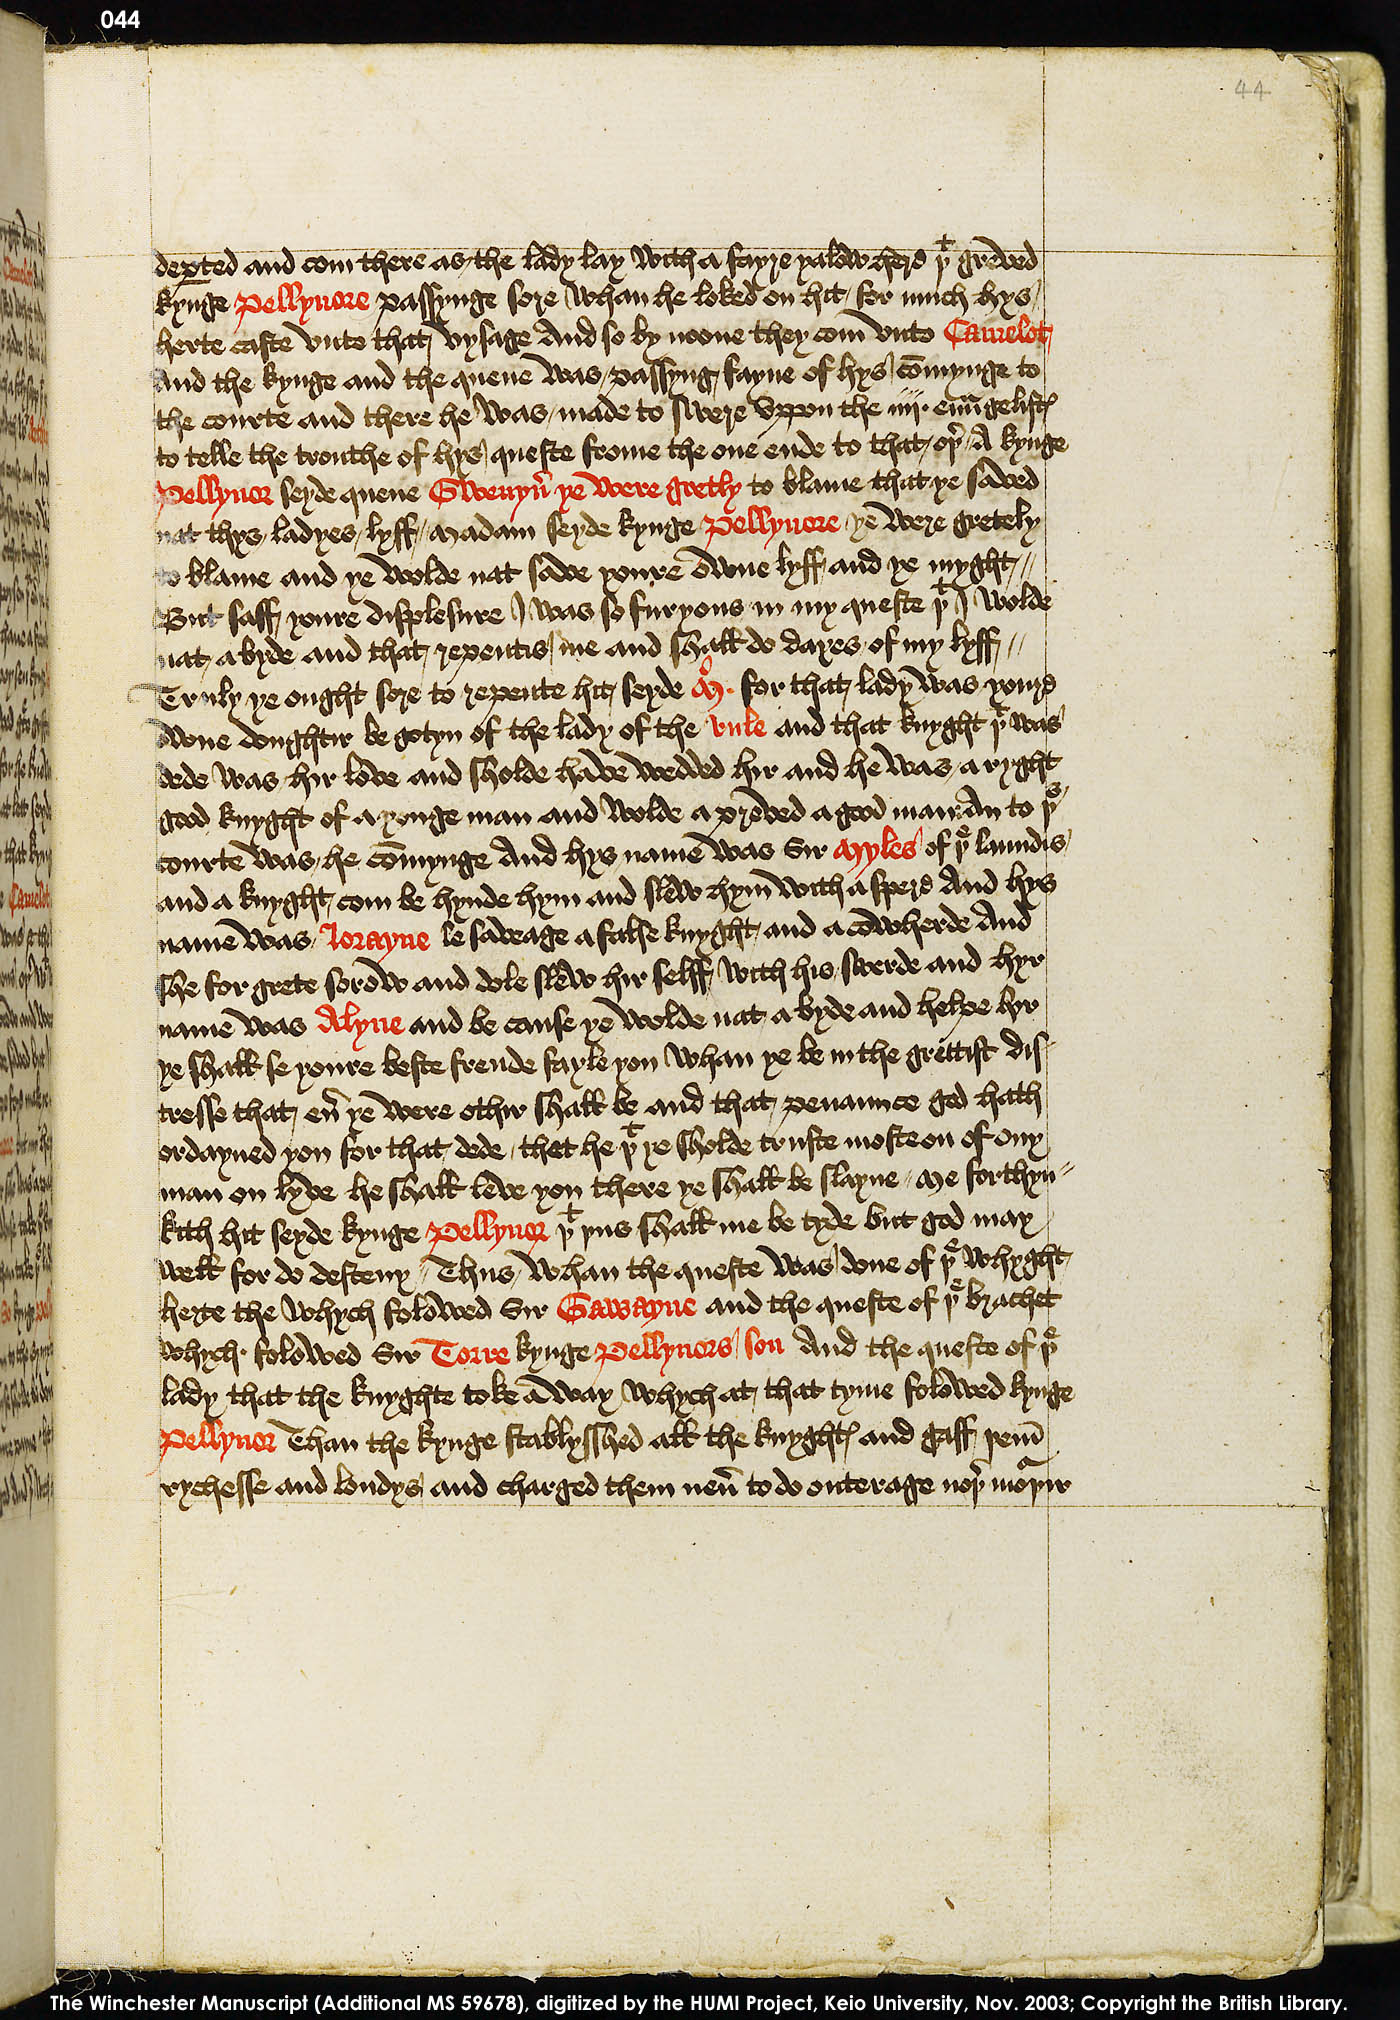 044
44
dep̱ted and com there as the lady lay with a fayre yalow here þᵗ greved
kynge Pellynore passynge sore whan he loked on hit for much hys
herte caste vnto that vysage And so by noone they com vnto Camelot
And the kynge and the quene was passyng fayne of hys co̅mynge to
the courte and there he was made to swere vppon the iiij. eu̅ngelistꝭ
to telle the trouthe of hys queste frome the one ende to that oþ̉ A kynge
Pellynor seyde quene Gwenyủ ye were gretly to blame that ye saved
nat thys ladyes lyff // Madam seyde kynge Pellynore ye were gretely
to blame and ye wolde nat save youre owne lyff and ye myght //
But saff youre displesure I was so furyous in my queste þᵗ I wolde
nat abyde and that repentis me and shall do dayes of my lyff //
Truly ye ought sore to repente hit seyde M̊. for that lady was youre
owne doughtir be gotyn of the lady of the rule and that knyght þᵗ was
dede was hir love and sholde have wedded hir and he was a ryght
good knyght of a yonge man and wolde a preved a good man An to þⁱˢ
courte was he co̅mynge And hys name was Sir Myles of þᵉ laundis
and a knyght com be hynde hym and slew hym with a spere And hys
name was Lorayne le saveage a false knyght and a cowherde And
she for grete sorow and dole slew hir selff with his swerde and hyr
name was Alyne and be cause ye wolde nat abyde and helpe hir
ye shall se youre beste frende fayle you whan ye be in the grettist dis-
tresse that eủ ye were othir shall be and that penaunce god hath
ordayned you for that dede that he þᵗ ye sholde truste moste on of ony
man on lyve he shall leve you there ye shall be slayne // Me forthyn-
kith hit seyde kynge Pellynor þᵗ þus shall me be tyde but god may
well for do desteny // Thus whan the queste was done of þᵉ whyght
herte the whych folowed Sir Gawayne and the queste of þᵉ brachet
whych folowed Sir Torre kynge Pellynors son And the queste of þᵉ
lady that the knyghte toke a way whych at that tyme folowed kynge
Pellynor Than the kynge stablysshed all the knyghtꝭ and gaff þem̅
rychesse and londys and charged them neủ to do outerage noþ̉ morþir
The Winchester Manuscript (Additional MS 59678), digitized by the HUMI Project, Keio University, Nov. 2003; Copyright the British Library.